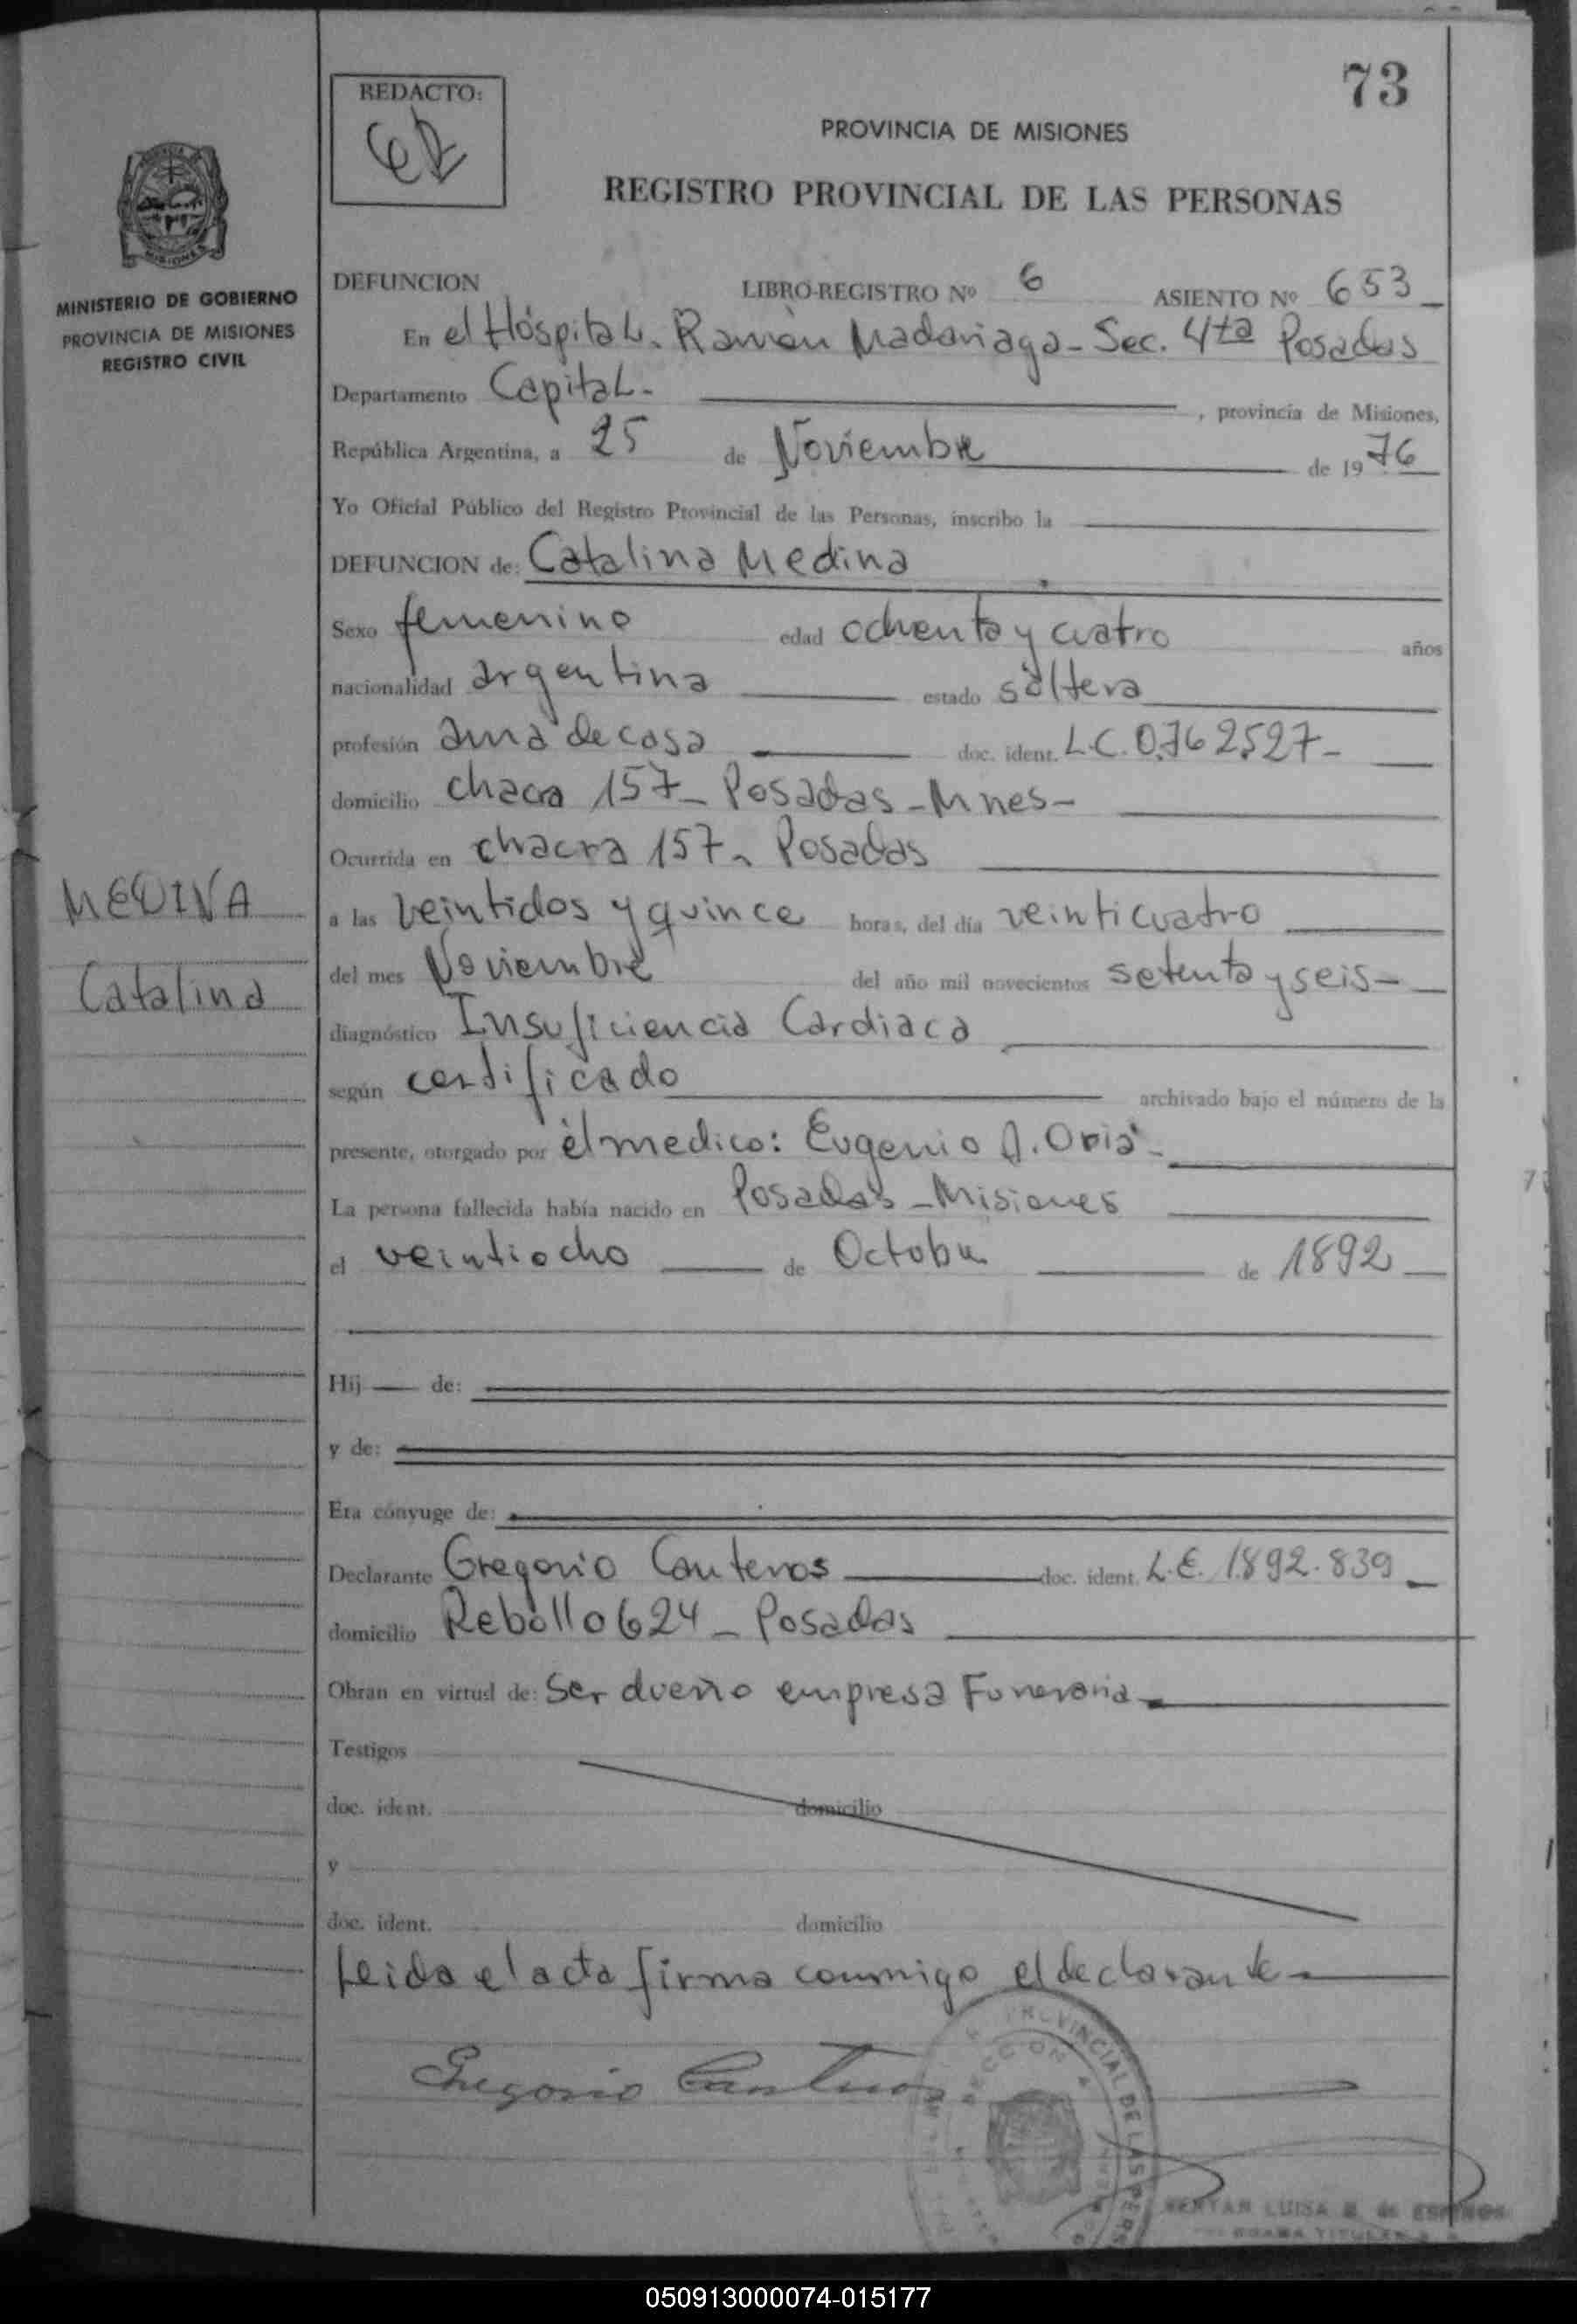 73
REDACTO:
PROVINCIA DE MISIONES
REGISTRO PROVINCIAL DE LAS PERSONAS
MINISTERIO DE GOBIERNO
PROVINCIA DE MISIONES
REGISTRO CIVIL
MEDINA
Catalina
DEFUNCION LIBRO-REGISTRO Nº 6 ASIENTO Nº 653
En el Hospital. Ramón Madariaga - Sec. 4ta Posadas
Departamento Capital - , provincia de Misiones,
República Argentina, a 25 de Noviembre de 1976
Yo Oficial Público del Registro Provincial de las Personas, inscribo la
DEFUNCION de: Catalina Medina
Sexo femenino edad ochenta y cuatro años
nacionalidad argentina estado soltera
profesión ama de casa doc. ident. L.C. 0.762.527-
domicilio chacra 157 - Posadas - Mnes -
Ocurrida en chacra 157 - Posadas
a las veintidos y quince horas, del día veinticuatro
del mes Noviembre del año mil novecientos setenta y seis -
diagnóstico Insuficiencia Cardiaca
según certificado archivado bajo el número de la
presente, otorgado por el medico: Eugenio A.
La persona fallecida había nacido en Posadas - Misiones
el veintiocho de Octubre de 1892
Hij de:
y de:
Era cónyuge de:
Declarante Gregorio Canteros doc. ident. L.E. 1.892.839
domicilio Rebollo 624 - Posadas
Obran en virtud de: Ser dueño empresa Funeraria
Testigos
doc. ident. domicilio
y
doc. ident. domicilio
Leida el acta firma conmigo el declarante -
Gregorio Canteros
PROVINCIAL DE LAS PERS
SECCION
LUISA
050913000074-015177